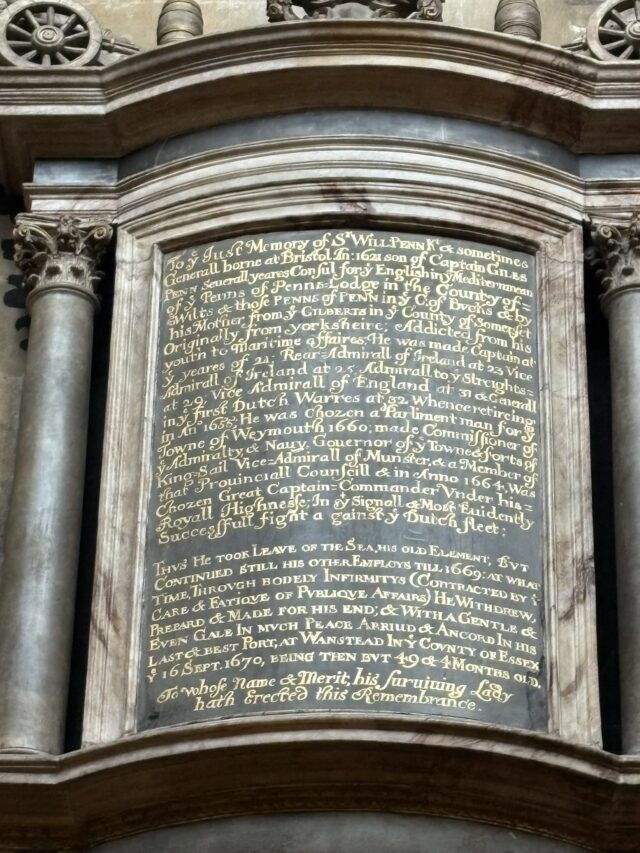 To yᵉ Just Memory of Sʳ WILL PENN Kᵗ & sometimes
Generall borne at Bristol In 1621 son of Captain GILES
PENN severall yeares Consul for yᵉ English in yᵉ Mediterranean
of yᵉ Penns of Penns-Lodge in the County of
Wilts & those PENNS of PENN in yᵉ C. of BVCKS & by
his Mother from yᵉ GILBERTS in yᵉ County of Somerset
Originally from yorksheire; Addicted from his
youth to Maritime affaires; He was made Captain at
yᵉ yeares of 21; Rear-Admirall of Ireland at 23 Vice
Admirall of Ireland at 25 Admirall to yᵉ Streights=
at 29: Vice Admirall of England at 31 & Generall
in yᵉ first Dutch Warres at 32 Whence retireing
in Anᵒ 1655 He was Chozen a Parliment man for yᵉ
Towne of Weymouth 1660; made Commissioner of
yᵉ Admiralty, & Navy. Governor of yᵉ Towne & forts of
King-Sail Vice-Admirall of Munster, & a Member of
that Provinciall Counseill & in Anno 1664, was
Chozen Great Captain-Commander Vnder his=
Royall Highnesse; In yᵉ Signall & Most Euidently
Successfull fight against yᵉ Dutch fleet;
THVS HE TOOK LEAVE OF THE SEA, HIS OLD ELEMENT, BVT
CONTINUED STILL HIS OTHER EMPLOYS TILL 1669; AT WHAT
TIME, THROUGH BODELY INFIRMITYS (CONTRACTED BY yᵉ
CARE & FATIQUE OF PVBLIQVE AFFAIRS) HE WITHDREW,
PREPARD & MADE FOR HIS END; & WITH A GENTLE &
EVEN GALE IN MVCH PEACE ARRIUD & ANCORD IN HIS
LAST & BEST PORT, AT WANSTEAD IN Yᵉ COVNTY OF ESSEX
Yᵉ 16 SEPT. 1670, BEING THEN BVT 49 & 4 MONTHS OLD.
To whose Name & Merit, his surviving Lady
hath Erected this Remembrance.